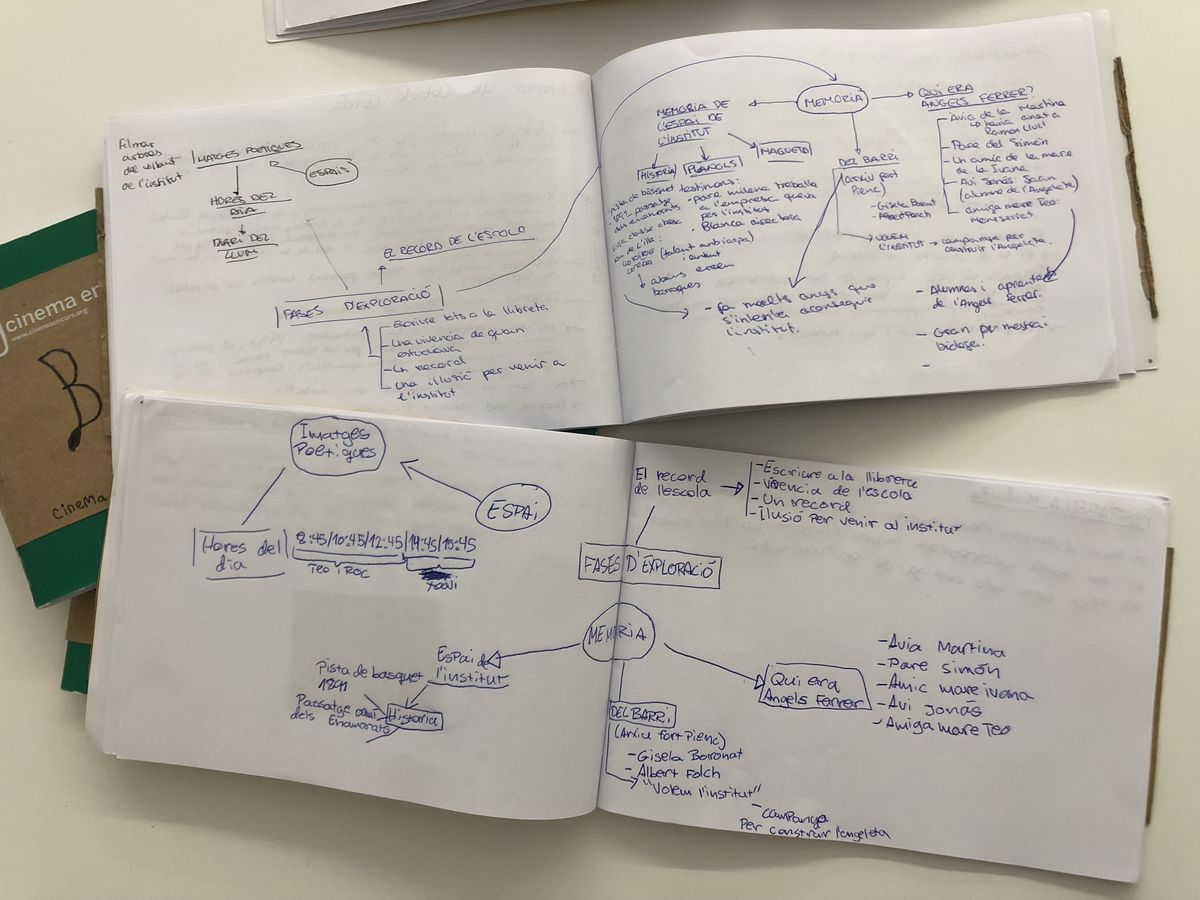 Filmar
arbres
del voltant
de l'institut
IMATGES POETIQUES
ESPAIS
HORES DEL
DIA
DIARI DEL
LLUM
EL RECORD DE L'ESCOLA
FASES D'EXPLORACIÓ
- Escriure tots a la llibreta
- Una vivencia de quan
estudiava
- Un record
- una il·lusió per venir a
l'institut
MEMORIA
MEMORIA DE
L'ESPAI DE
L'INSTITUT
HISTORIA
PLANOLS
MAQUETA
Pista de bàsquet
- 1891 passatge
dels enamorats
testimonis:
- pare milena treballa
a l'empresa
per l'institut
Blanca directora
DEL BARRI
(arxiu fort
Pienc)
- Gisela
- Albert Folch
VOLEM
L'INSTITUT → campanya per
construir l'Angeleta.
QUI ERA
ÀNGELS FERRER?
- Avia de la Martina
Ramon Llull
- Pare del Simón
- Un amic de la mare
de la Ivana
- Avi Jonás
(alumne de l'Angeleta)
- amiga mare Teo:
Montserrat.
- Fa molts anys que
s'intenta aconseguir
l'institut.
- Alumnes i
de l'Àngels Ferrer.
- Gran
cinema en
www.cinemaencurs.org
B
cinema
Imatges
Poètiques
ESPAI
Hores del
dia
8:45/10:45/12:45/14:45/16:45
TEO i ROC
xavi
El record
de l'escola
- Escriure a la llibreta
- Vivencia de l'escola
- Un record
- Ilusió per venir al institut
FASES D'EXPLORACIÓ
MEMORIA
Espai de
l'institut
Pista de basquet
1891
Passatge
dels Enamorats
Historia
DEL BARRI
(Arxiu fort Pienc)
- Gisela Boronat
- Albert Folch
"Volem l'institut"
- campanya
Per construir l'angeleta
Qui era
Angels Ferrer
- Avia Martina
- Pare simón
- Amic mare ivana
- Avi Jonás
- Amiga mare Teo